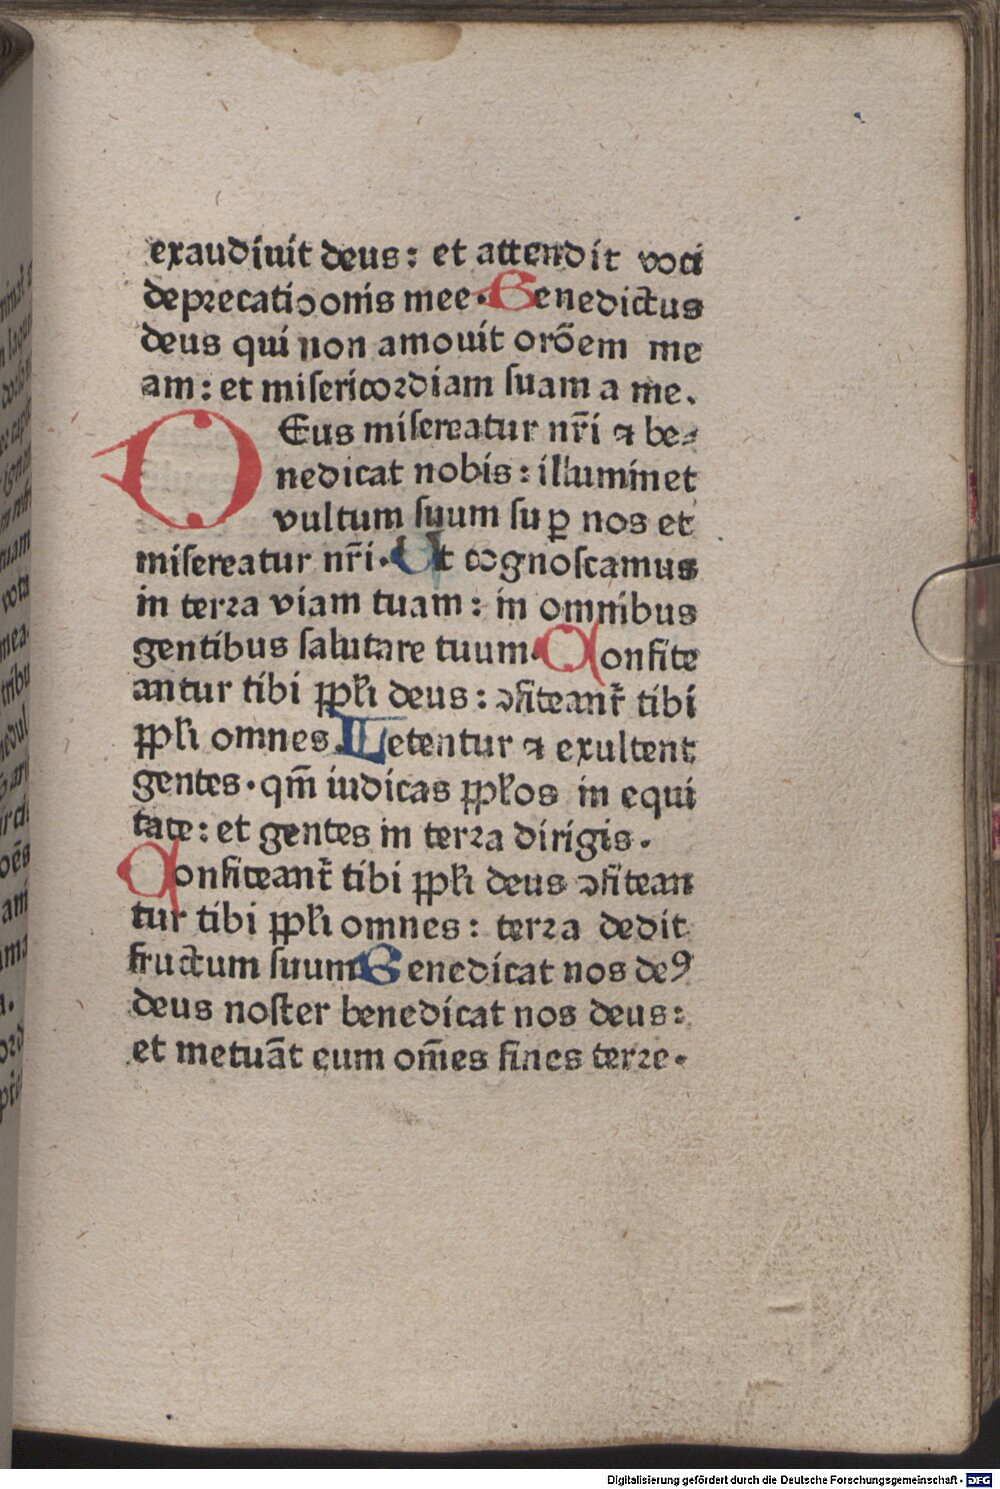 exaudiuit deus: et attendit voci
deprecatiↄonis mee. Benedictus
deus qui non amouit orōem me
am: et misericordiam suam a me.
DEus misereatur nr̄i ⁊ be⸗
nedicat nobis: illuminet
vultum suum suꝑ nos et
misereatur nr̄i. Ut cognoscamus
in terra viam tuam: in omnibus
gentibus salutare tuum. Confite
antur tibi ppl̄i deus: ↄfiteant᷑ tibi
ppl̄i omnes. Letentur ⁊ exultent
gentes. qm̄ iudicas ppl̄os in equi
tate: et gentes in terra dirigis.
Confiteant᷑ tibi ppl̄i deus ↄfitean
tur tibi ppl̄i omnes: terra dedit
fructum suum Benedicat nos deꝰ
deus noster benedicat nos deus:
et metuāt eum om̄es fines terre.
Digitalisierung gefördert durch die Deutsche Forschungsgemeinschaft - DFG